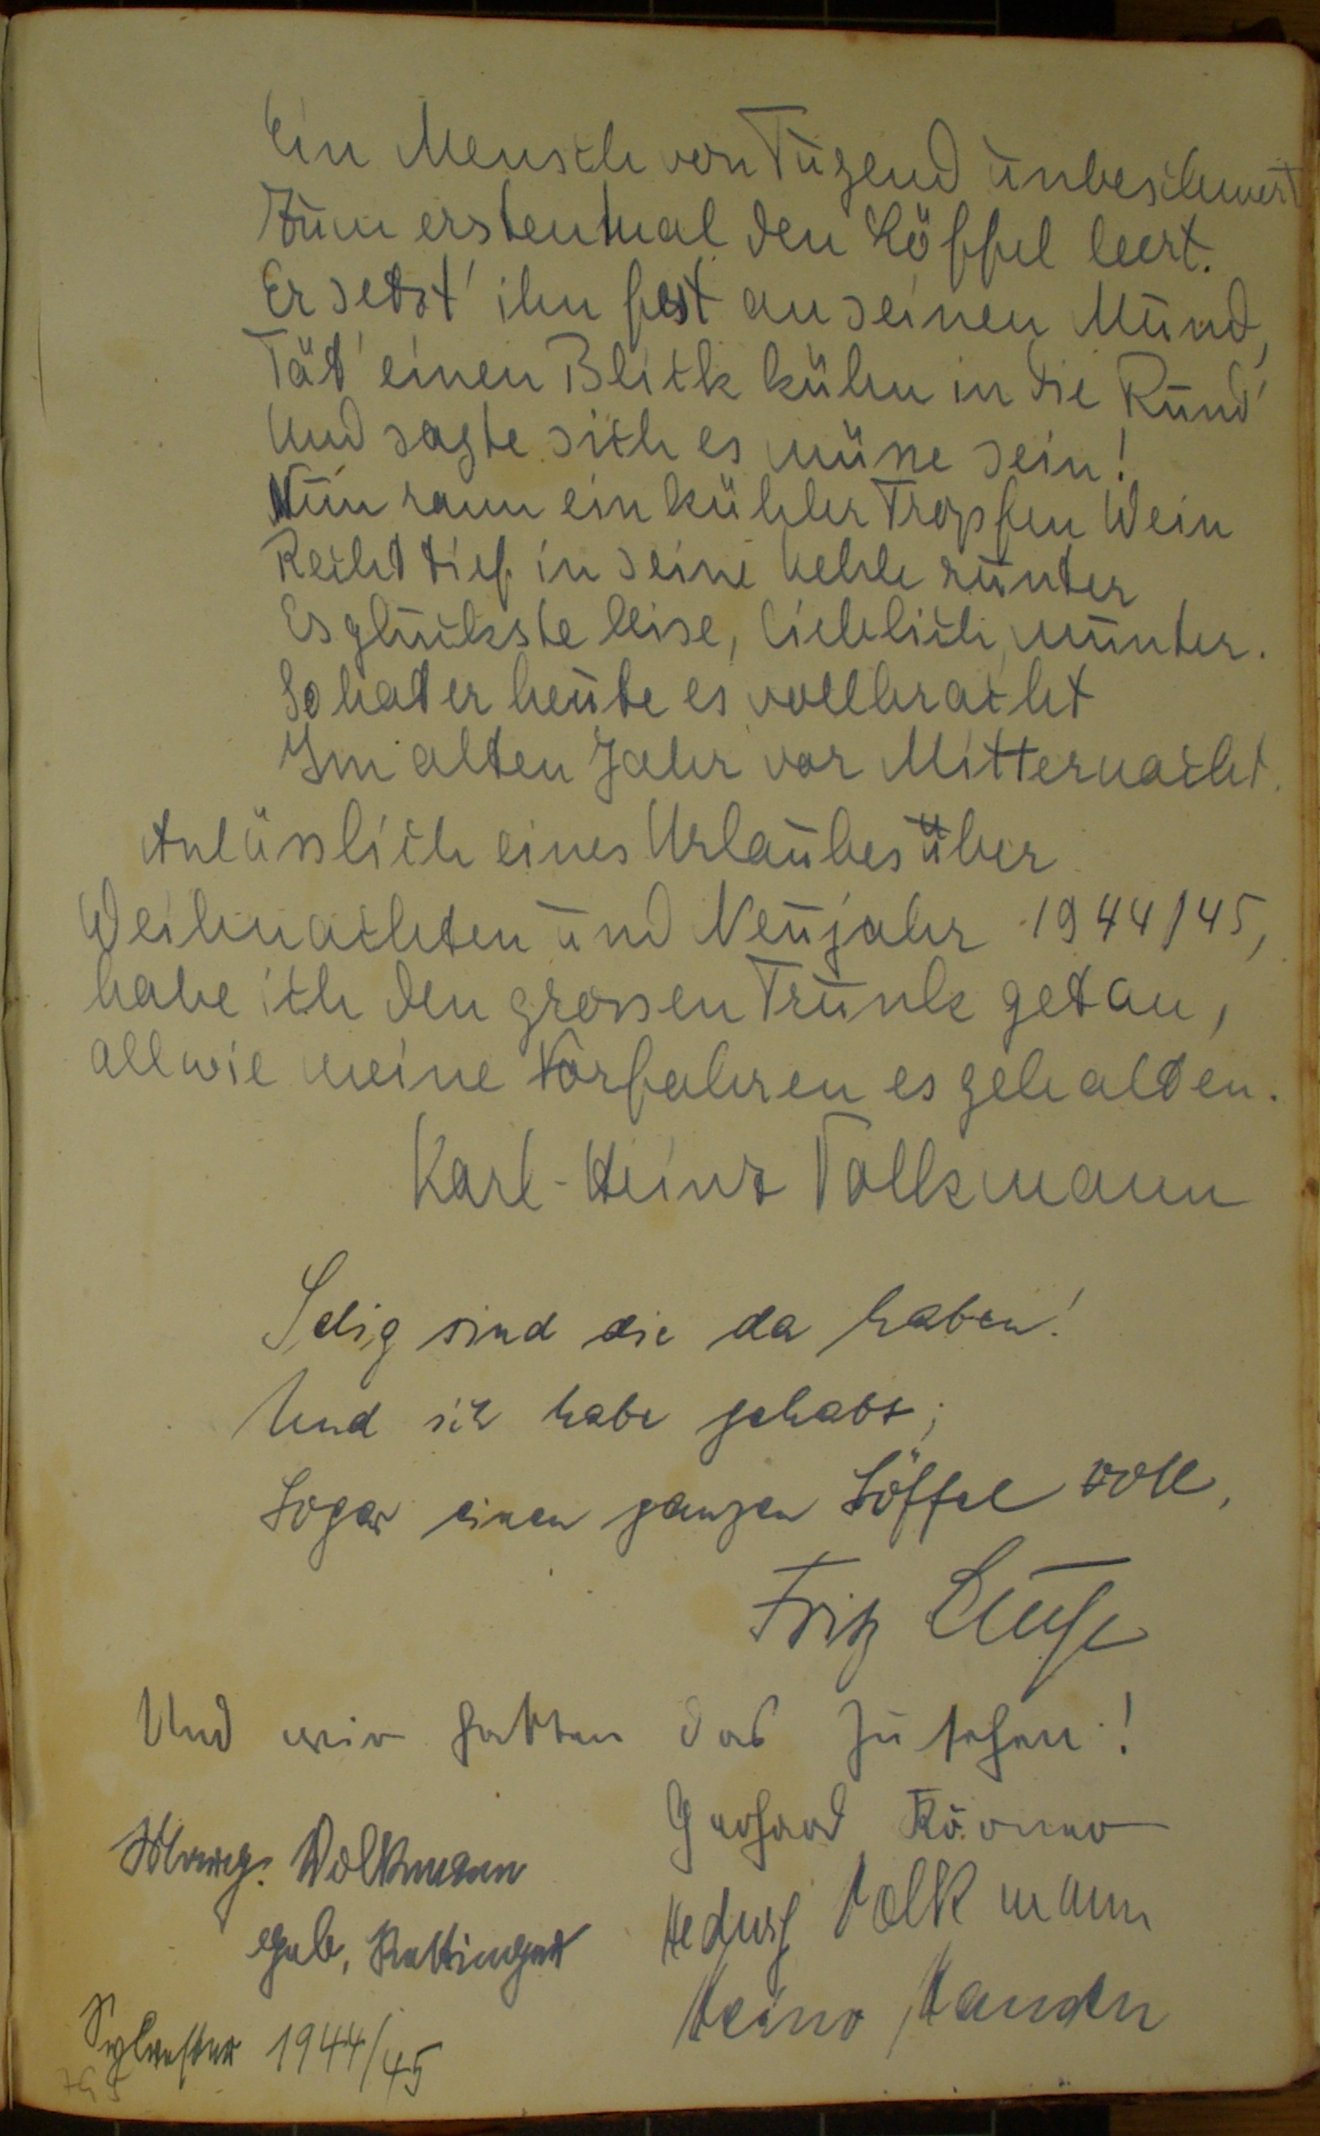 Ein Mensch von Tugend unbeschwert
Zum erstenmal den Löffel leert.
Er setzt' ihn fest an seinen Mund,
Tät' einen Blick kühn in die Rund'
Und sagte sich es müsse sein!
Nun rann ein kühler Tropfen Wein
Recht tief in seine Kehle runter
Es gluckste leise, lieblich, munter.
So hat er heute es vollbracht
Im alten Jahr vor Mitternacht.
Anlässlich eines Urlaubes über
Weihnachten und Neujahr 1944/45,
habe ich den grossen Trunk getan,
all wie meine Vorfahren es gehalten.
Karl-Heinz Volkmann
Selig sind die da haben!
Und ich habe gehabt;
Sogar einen ganzen Löffel voll,
Fritz
Und wir hatten das zusehen!
Gerhard Körner
Marg. Volkmann
geb.
Hedwig Volkmann
Heino
Sylvester 1944/45